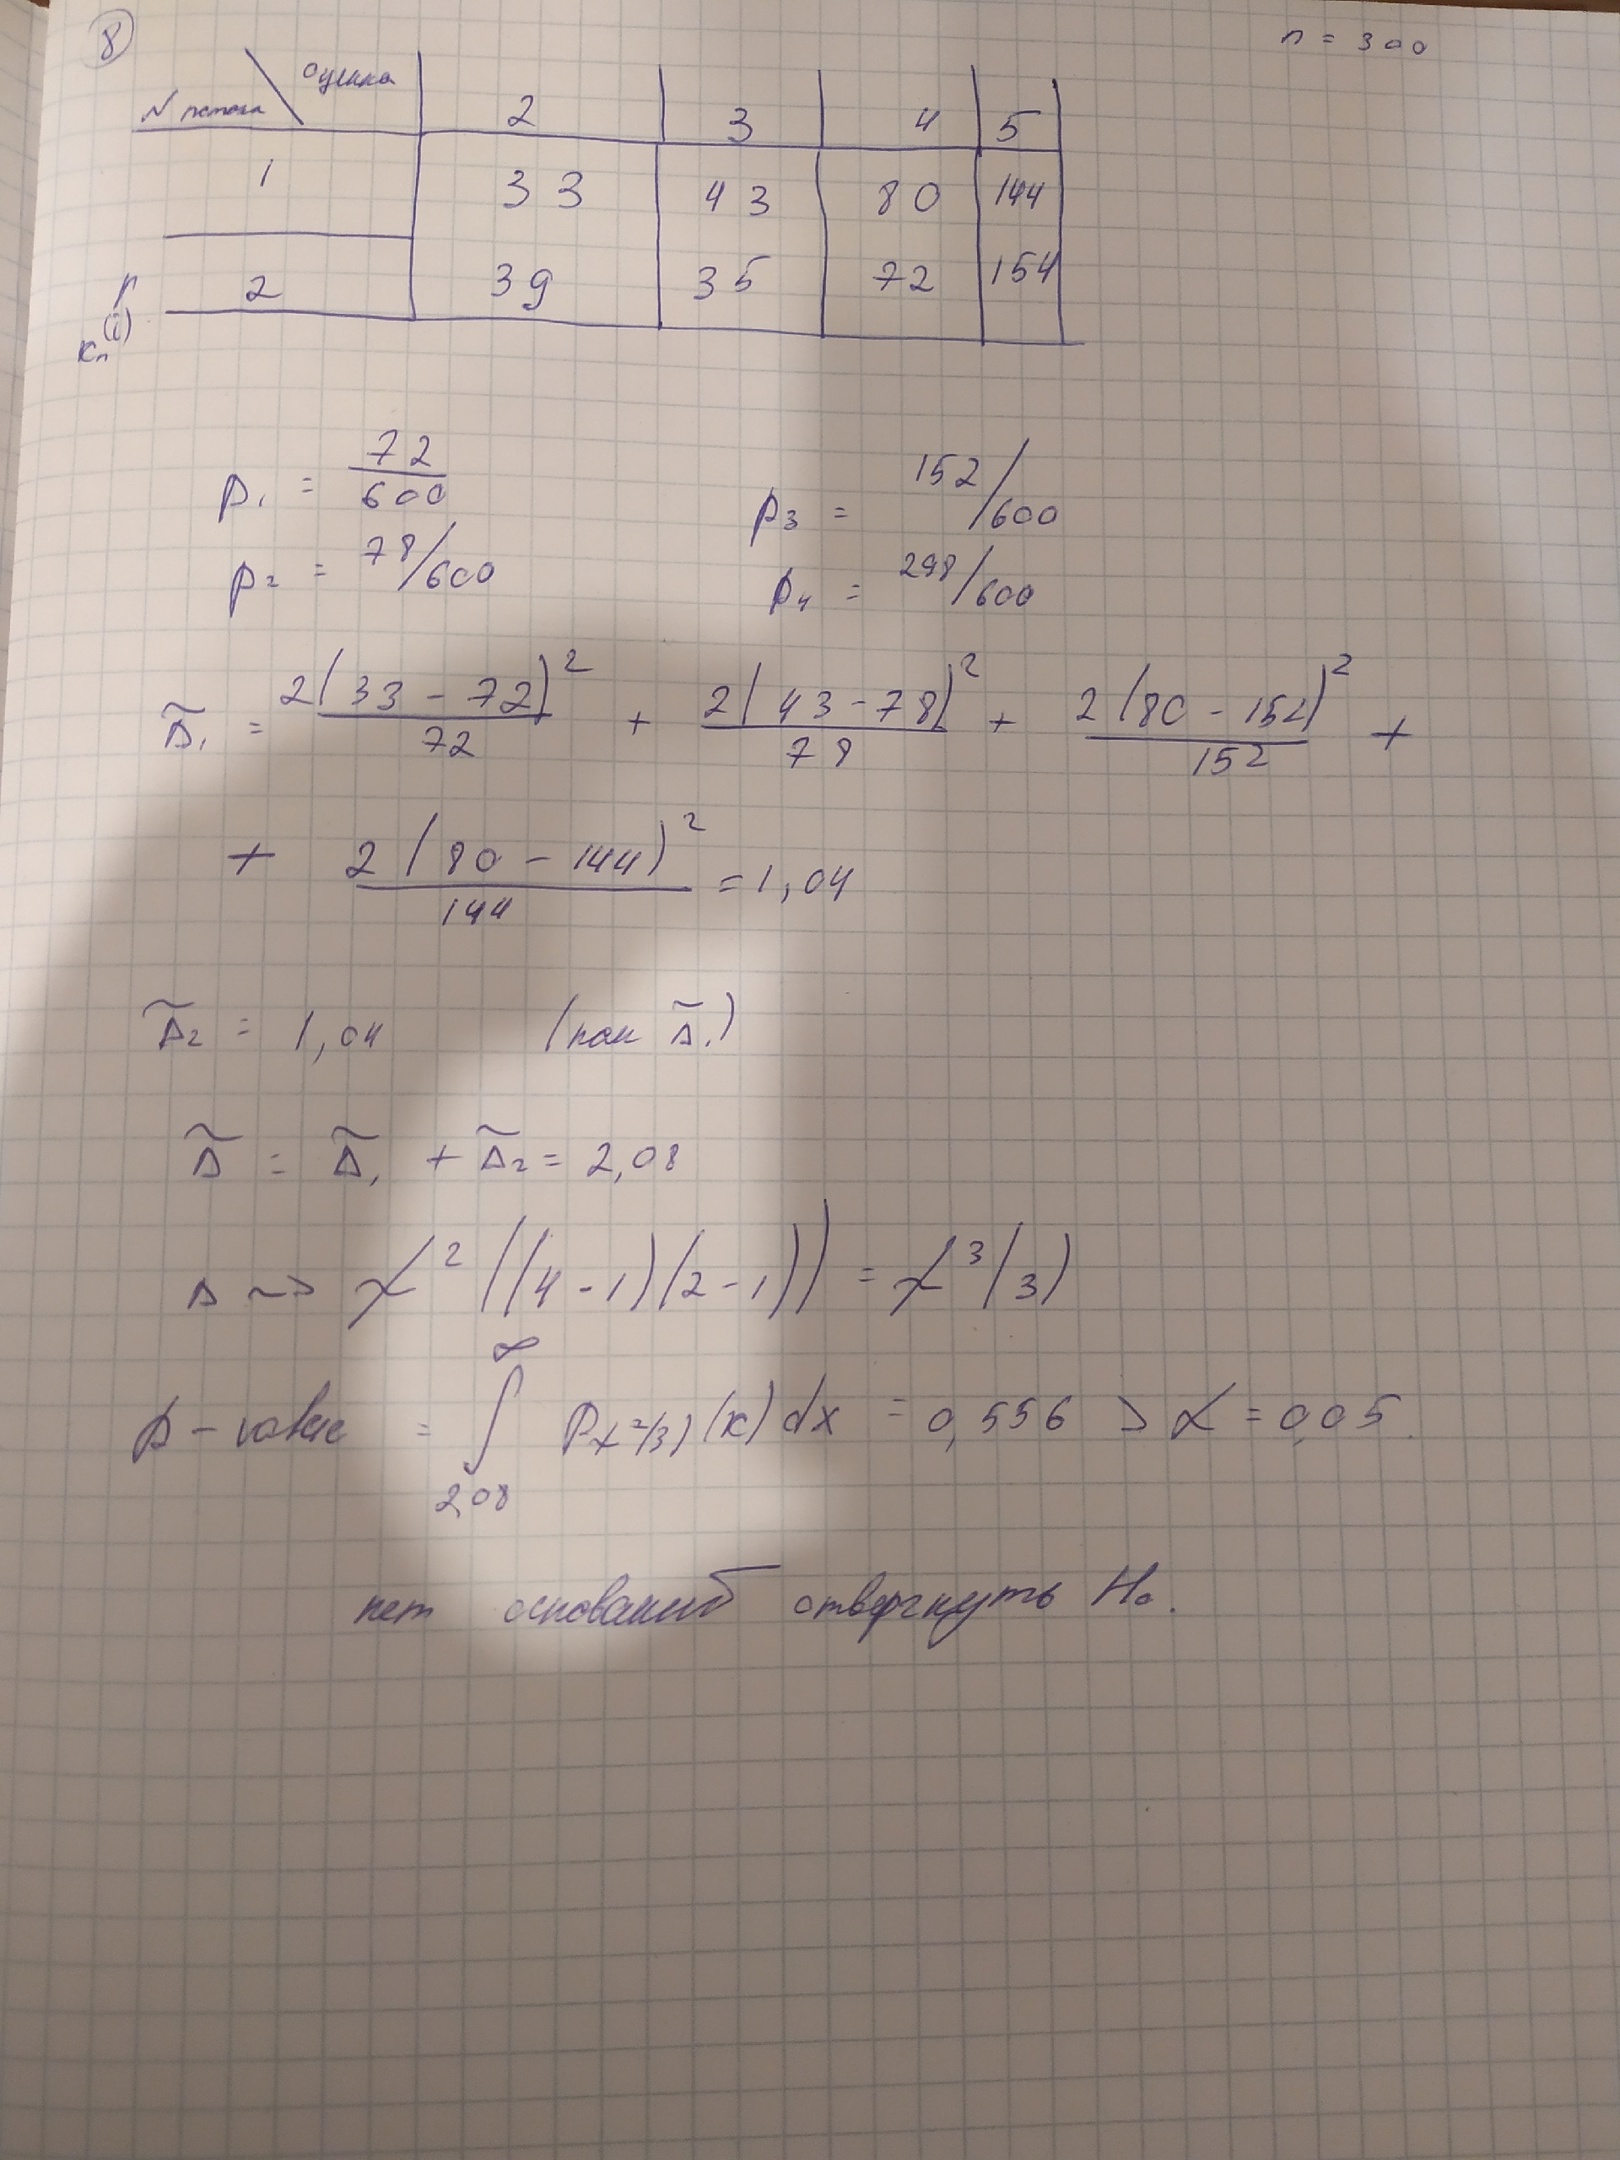 8
n = 300
N потока \ Оценка 2 3 4 5
1 33 43 80 144
2 39 35 72 154
p₁ = 72/600
p₃ = 152/600
p₂ = 78/600
p₄ = 298/600
Δ̃₁ = 2(33 - 72)²/72 + 2(43 - 78)²/78 + 2(80 - 152)²/152 +
+ 2(80 - 144)²/144 = 1,04
Δ̃₂ = 1,04 (как Δ̃₁)
Δ̃ = Δ̃₁ + Δ̃₂ = 2,08
Δ ~> χ²((4-1)(2-1)) = χ³(3)
p-value = ∫_{2,08}^{∞} P_{χ²(3)}(x) dx = 0,556 > α = 0,05.
нет оснований отвергнуть H₀.